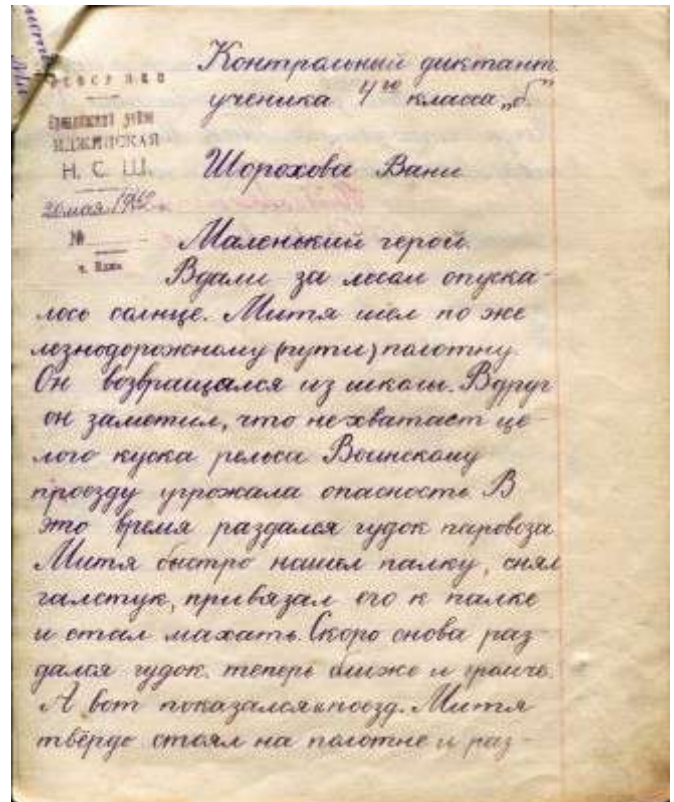 РСФСР НКО
ИДЖИНСКАЯ
Н. С. Ш.
20 мая 1942
№
с. Иджа
Контрольный диктант
ученика 4го класса „б"
Шорохова Вани
Маленький герой.
Вдали за лесом опуска-
лось солнце. Митя шёл по же
лезнодорожному (пути) полотну.
Он возвращался из школы. Вдруг
он заметил, что не хватает це-
лого куска рельса Воинскому
проезду угрожала опасность В
это время раздался гудок паровоза
Митя быстро нашел палку, снял
галстук, привязал его к палке
и стал махать. Скоро снова раз-
дался гудок. теперь ближе и громче.
А вот показался и поезд. Митя
твёрдо стоял на полотне и раз-